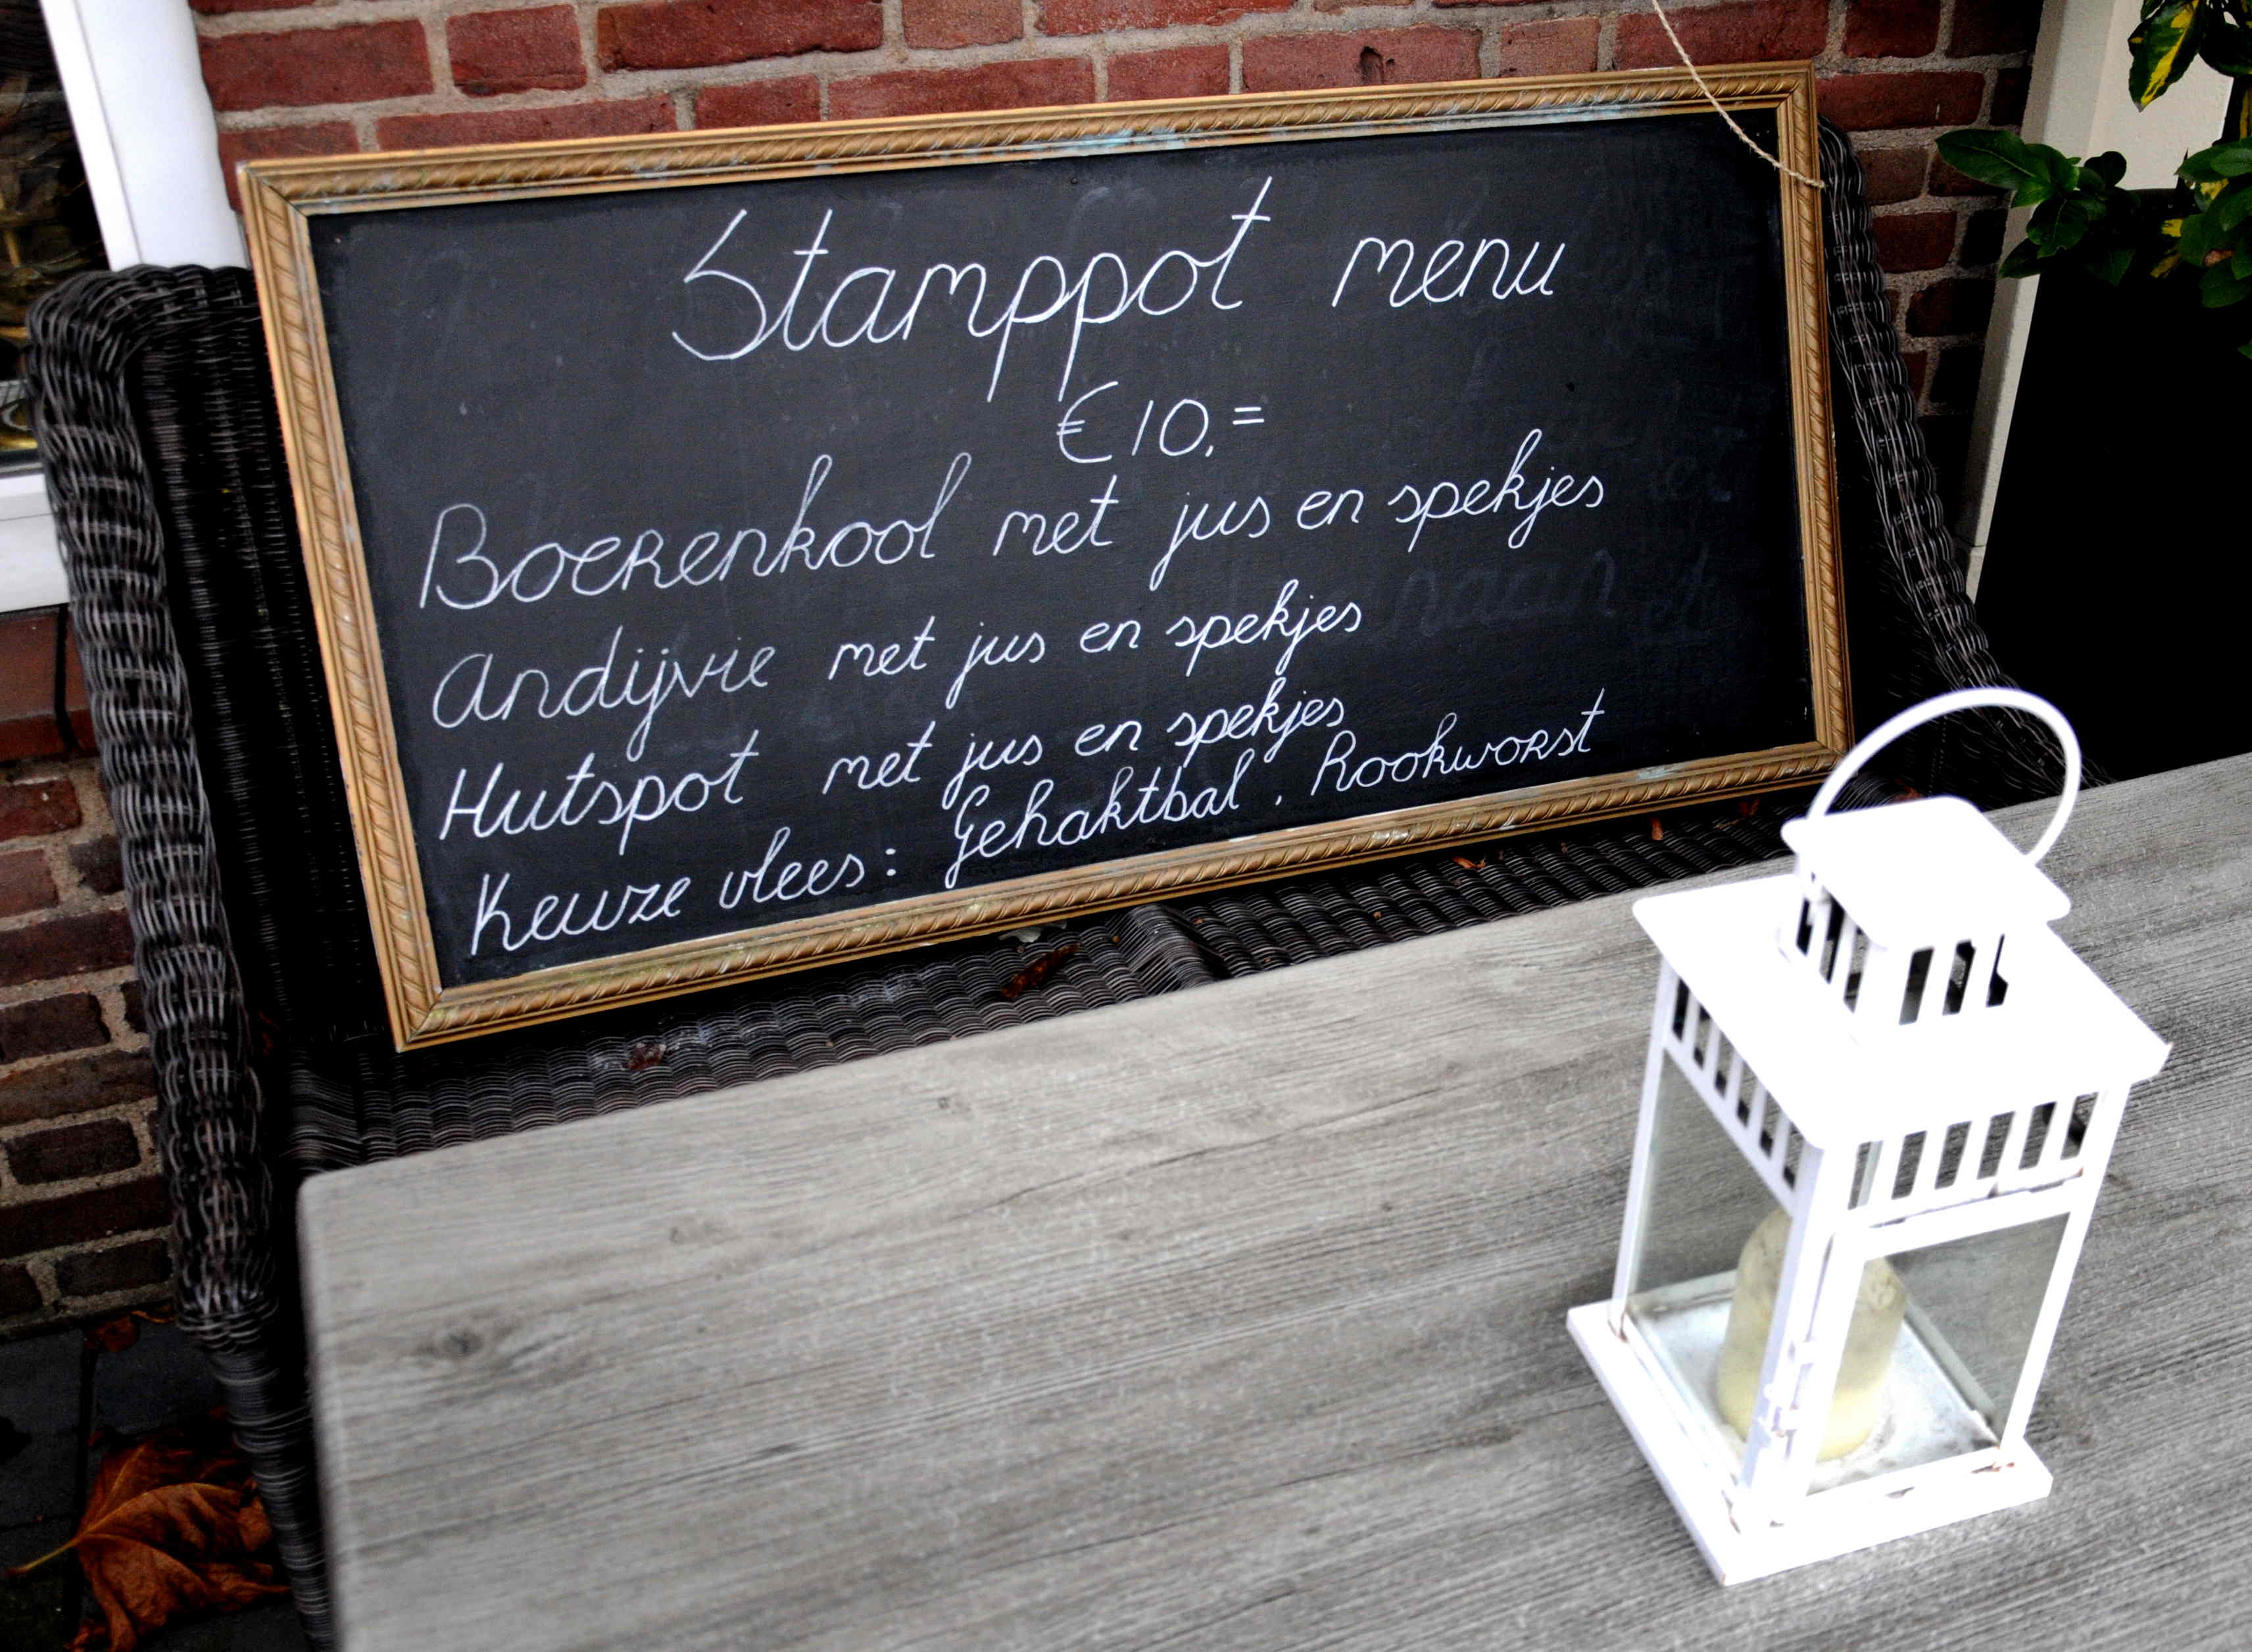 Stamppot menu
€10,=
Boerenkool met jus en spekjes
andijvie met jus en spekjes
Hutspot met jus en spekjes
Keuze vlees: Gehaktbal, Rookworst